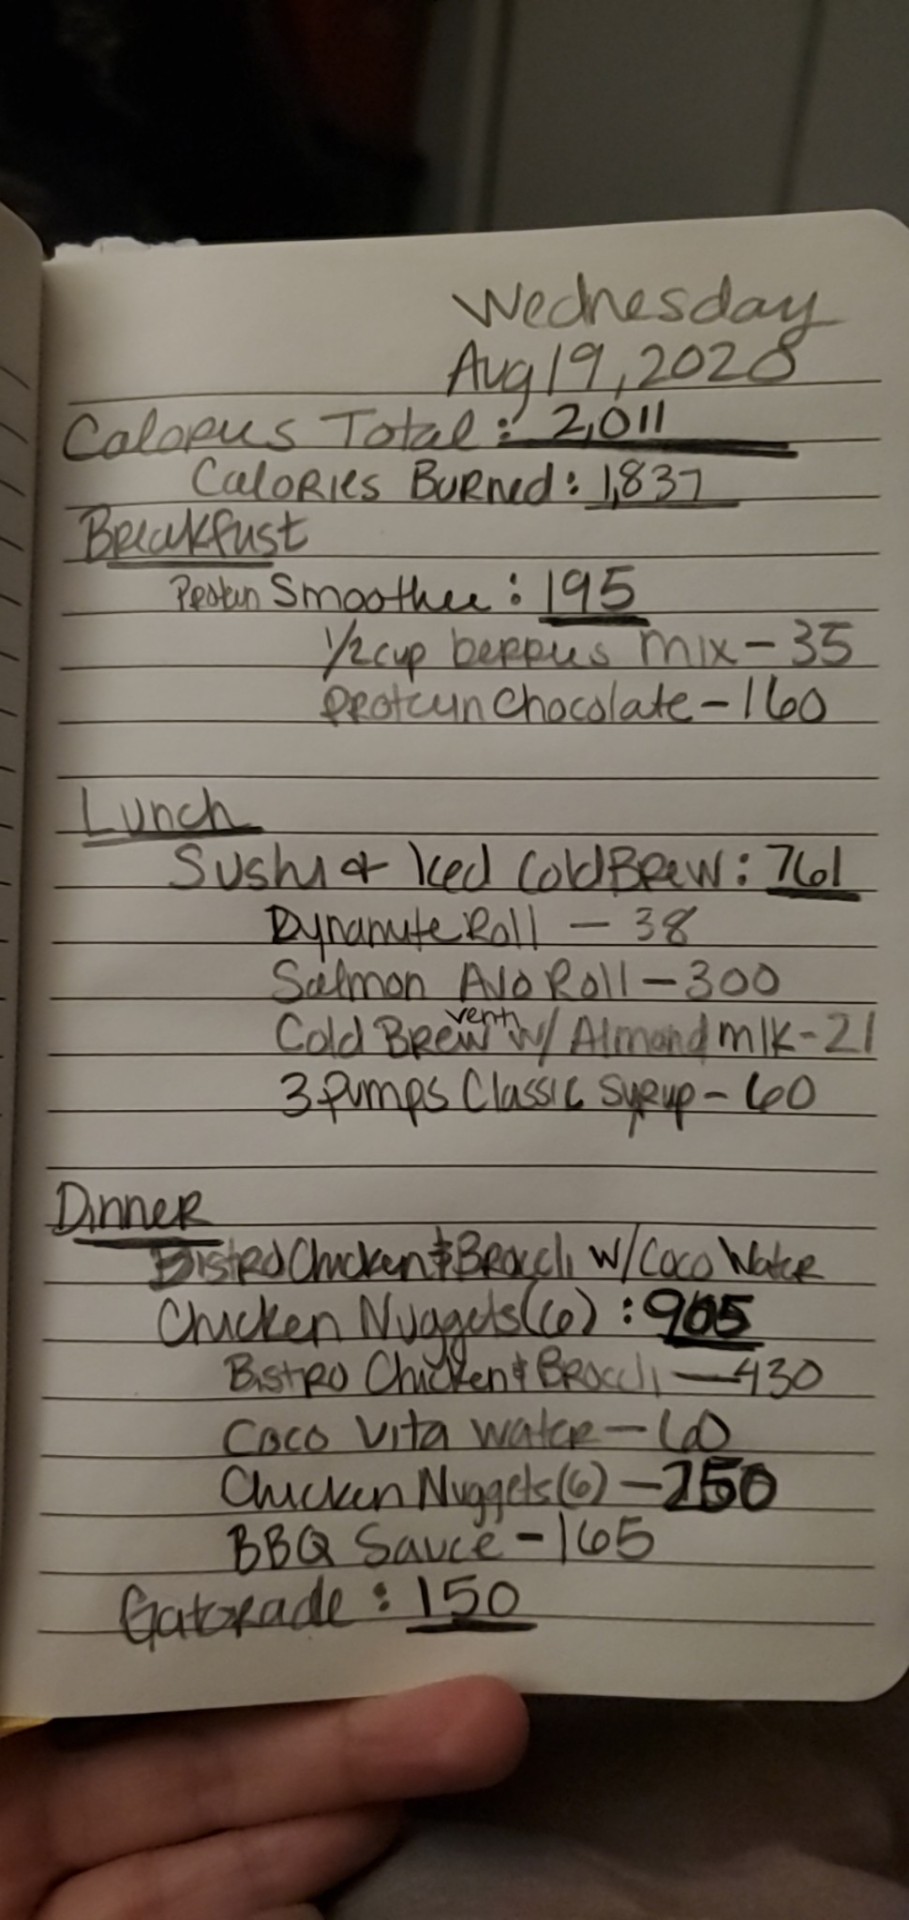 Wednesday
Aug 19, 2020
Calories Total: 2,011
Calories Burned: 1,837
Breakfast
Protein Smoothie: 195
1/2 cup berries mix - 35
Protein Chocolate - 160
Lunch
Sushi & Iced Cold Brew: 761
Dynamite Roll - 38
Salmon Avo Roll - 300
Cold Brew venti w/ Almond mlk - 21
3 Pumps Classic Syrup - 60
Dinner
Bistro Chicken & Broccli w/ Coco Water
Chicken Nuggets (6): 905
Bistro Chicken & Broccli - 430
Coco Vita Water - 60
Chicken Nuggets (6) - 250
BBQ Sauce - 165
Gatorade: 150